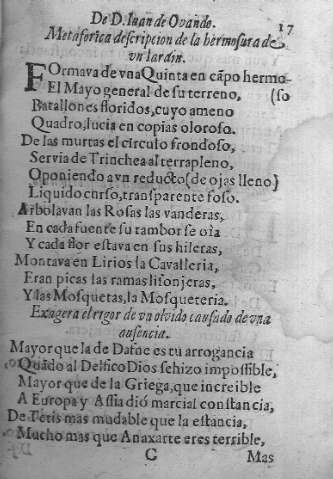 De D. Iuan de Ovando. 17
Metaforica descripcion de la hermosura de
vn Iardin.
FOrmava de vna Quinta en cãpo hermo-
El Mayo general de su terreno, (so
Batallones floridos, cuyo ameno
Quadro, lucia en copias oloroso.
De las murtas el circulo frondoso,
Servia de Trinchea al terrapleno,
Oponiendo a vn reducto (de ojas lleno)
Liquido curso, transparente foso.
Arbolavan las Rosas las vanderas,
En cada fuente su tambor se oìa
Y cada flor estava en sus hileras,
Montava en Lirios la Cavalleria,
Eran picas las ramas lisonjeras,
Y las Mosquetas, la Mosqueteria.
Exagera el rigor de vn olvido causado de vna
ausencia.
Mayor que la de Dafne es tu arrogancia
Quãdo al Delfico Dios se hizo impossible,
Mayor que de la Griega, que increible
A Europa y Assia diò marcial constancia,
De Tetis mas mudable que la estancia,
Mucho mas que Anaxarte eres terrible,
C Mas